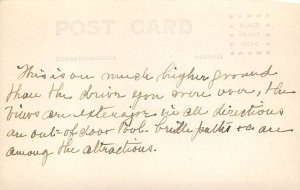 POST CARD
PLACE
STAMP
HERE
CORRESPONDENCE
ADDRESS
This is on much higher ground
than the drive you were over, the
views are extensive in all directions
an out-of door Pool- bridle paths &c are
among the attractions.